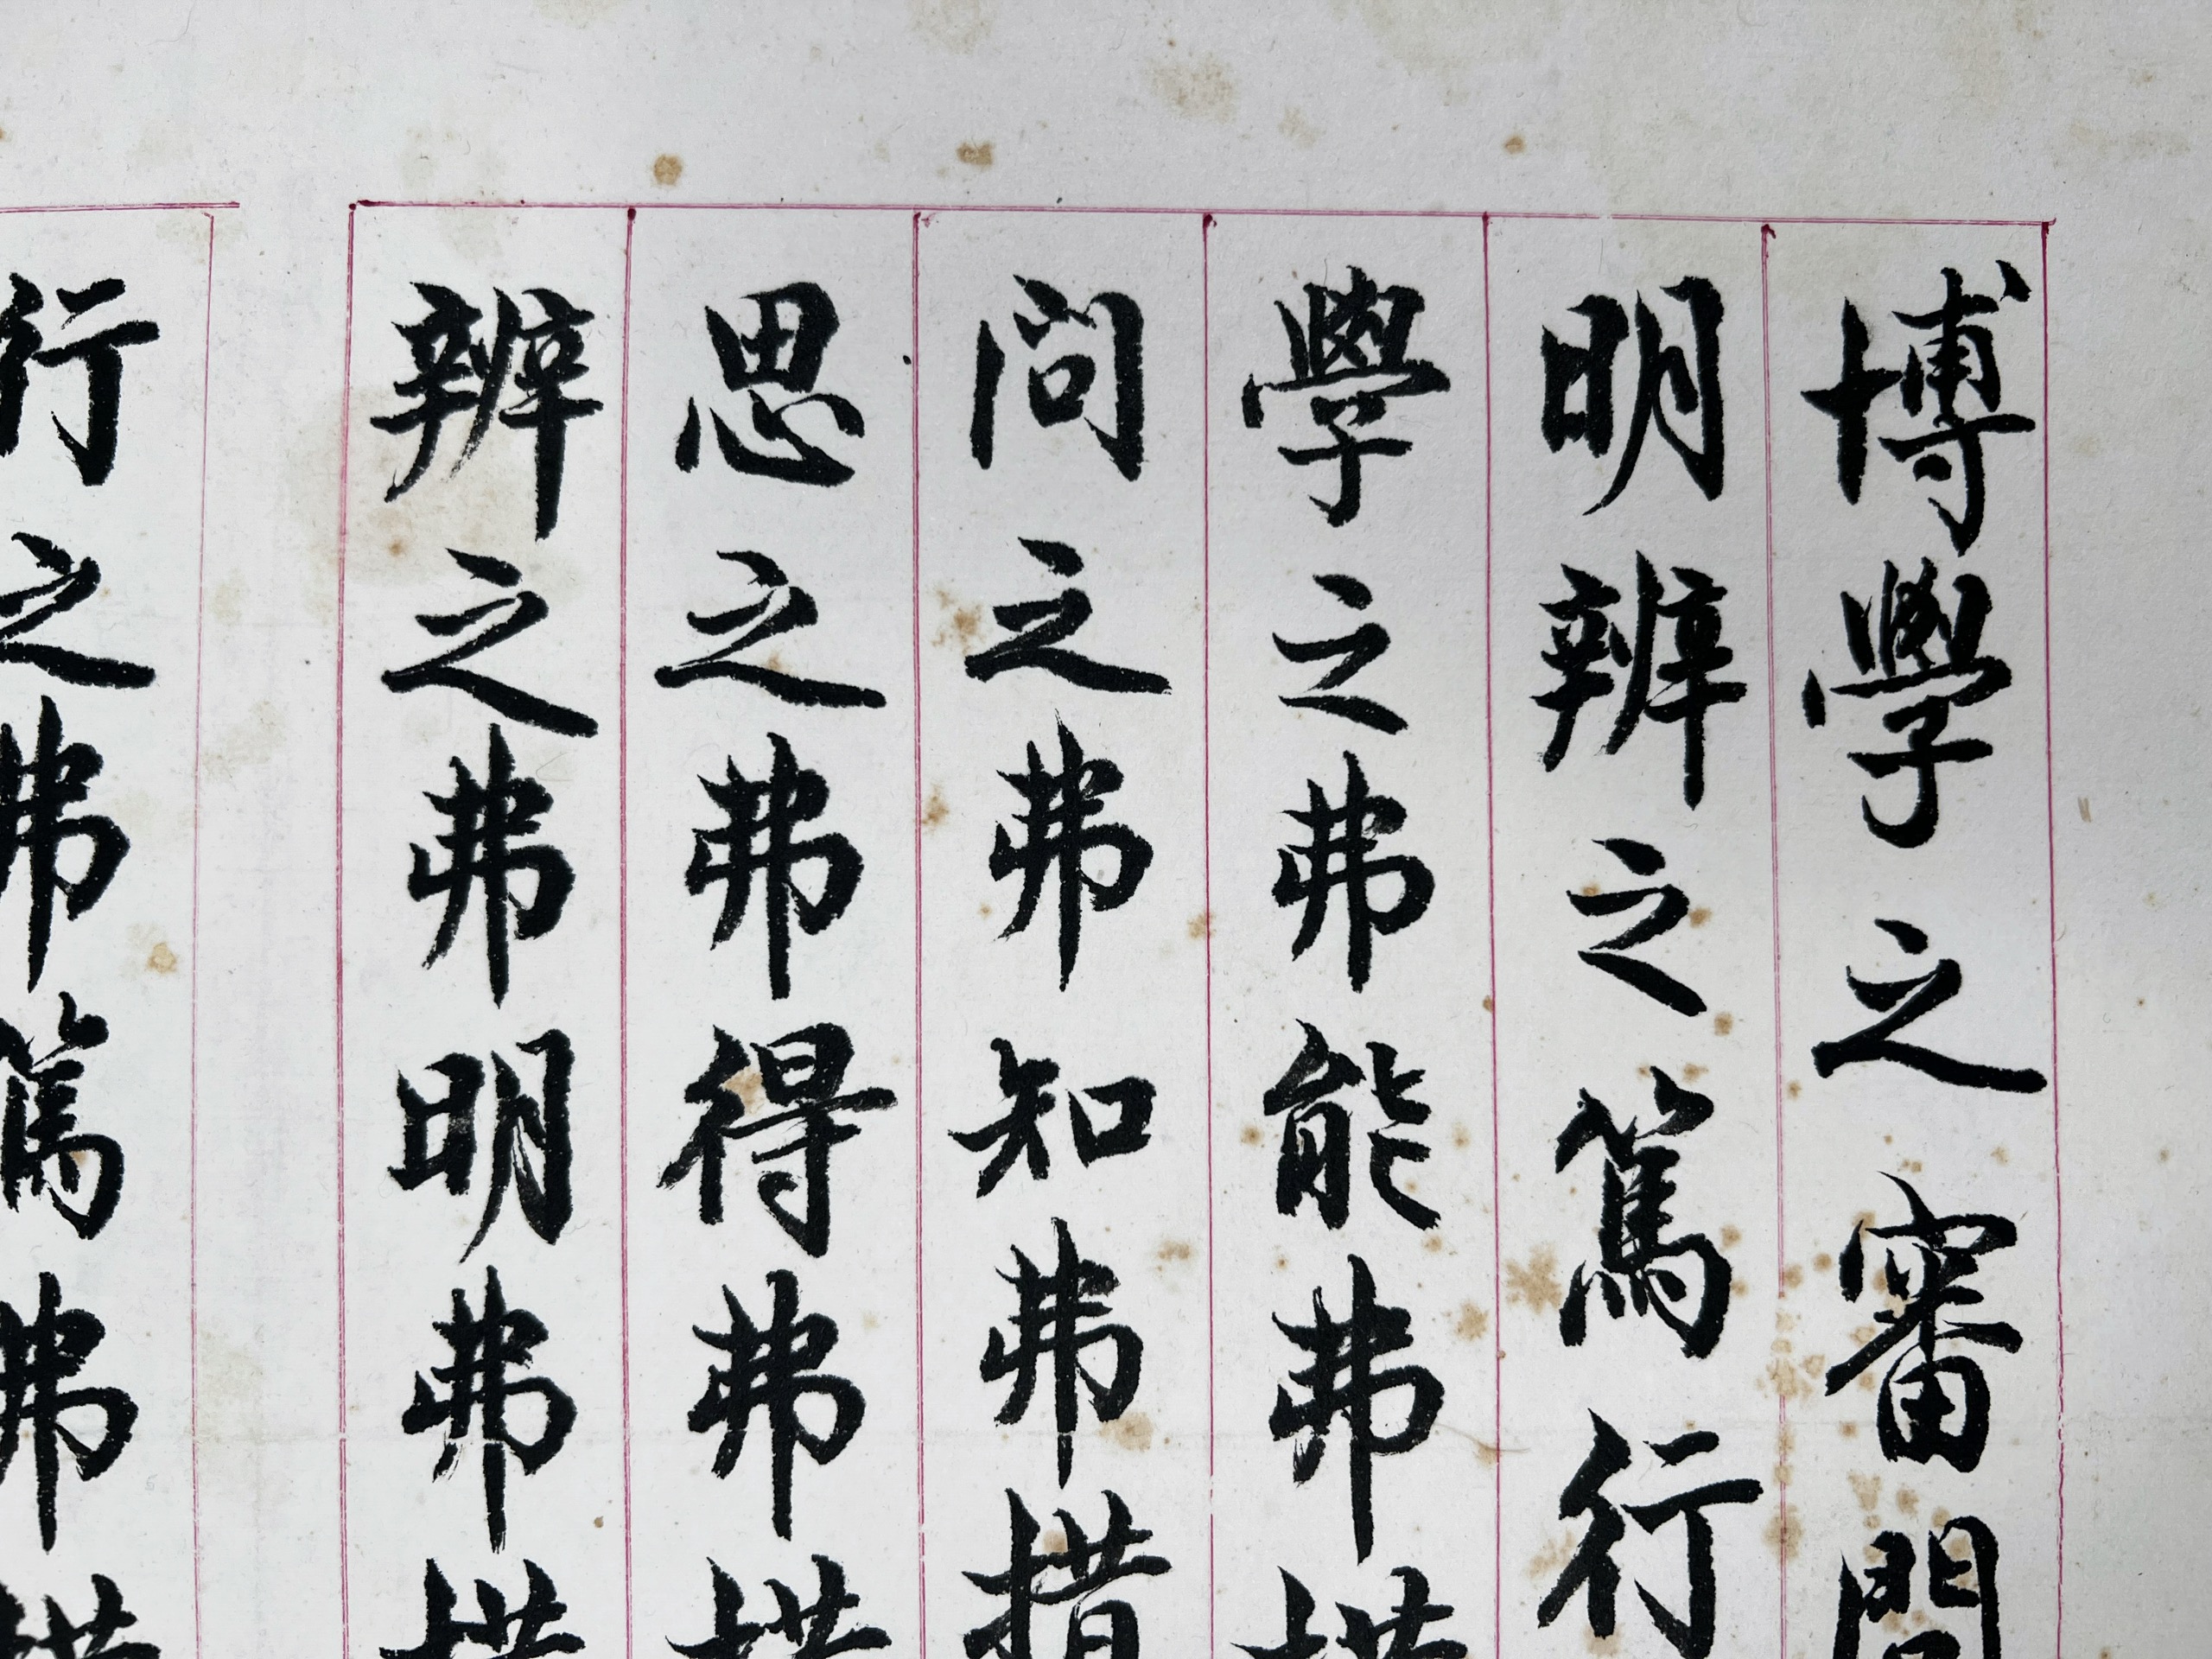 博學之審問
明辨之篤行
學之弗能弗措
問之弗知弗措
思之弗得弗措
辨之弗明弗措
行之弗篤弗措